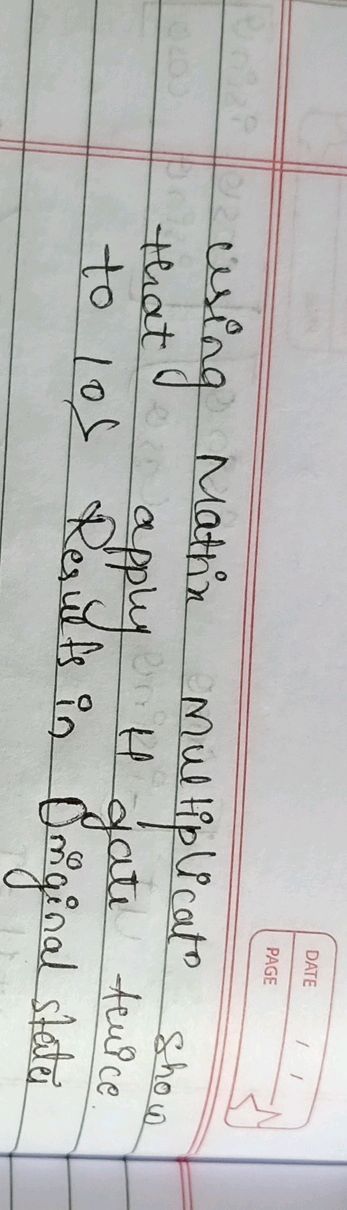 DATE / /
PAGE
using Matrix Multiplicatn show
that apply H gate twice
to 10> Results in Original states